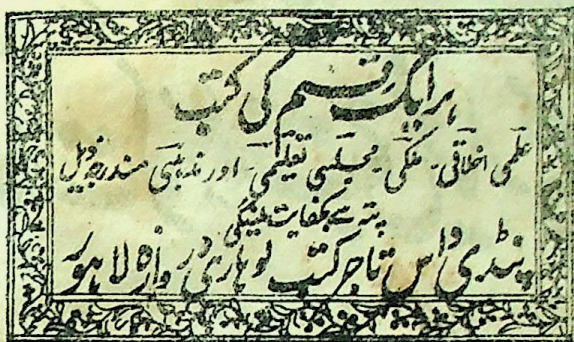 ہر ایک قسم کی کتب
علمی اخلاقی۔ ملکی مجلسی تعلیمی۔ اور مذہبی مندرجہ ذیل
پتہ سے بکفایت ملینگی
پنڈی داس تاجر کتب لوہاری دروازہ لاہور